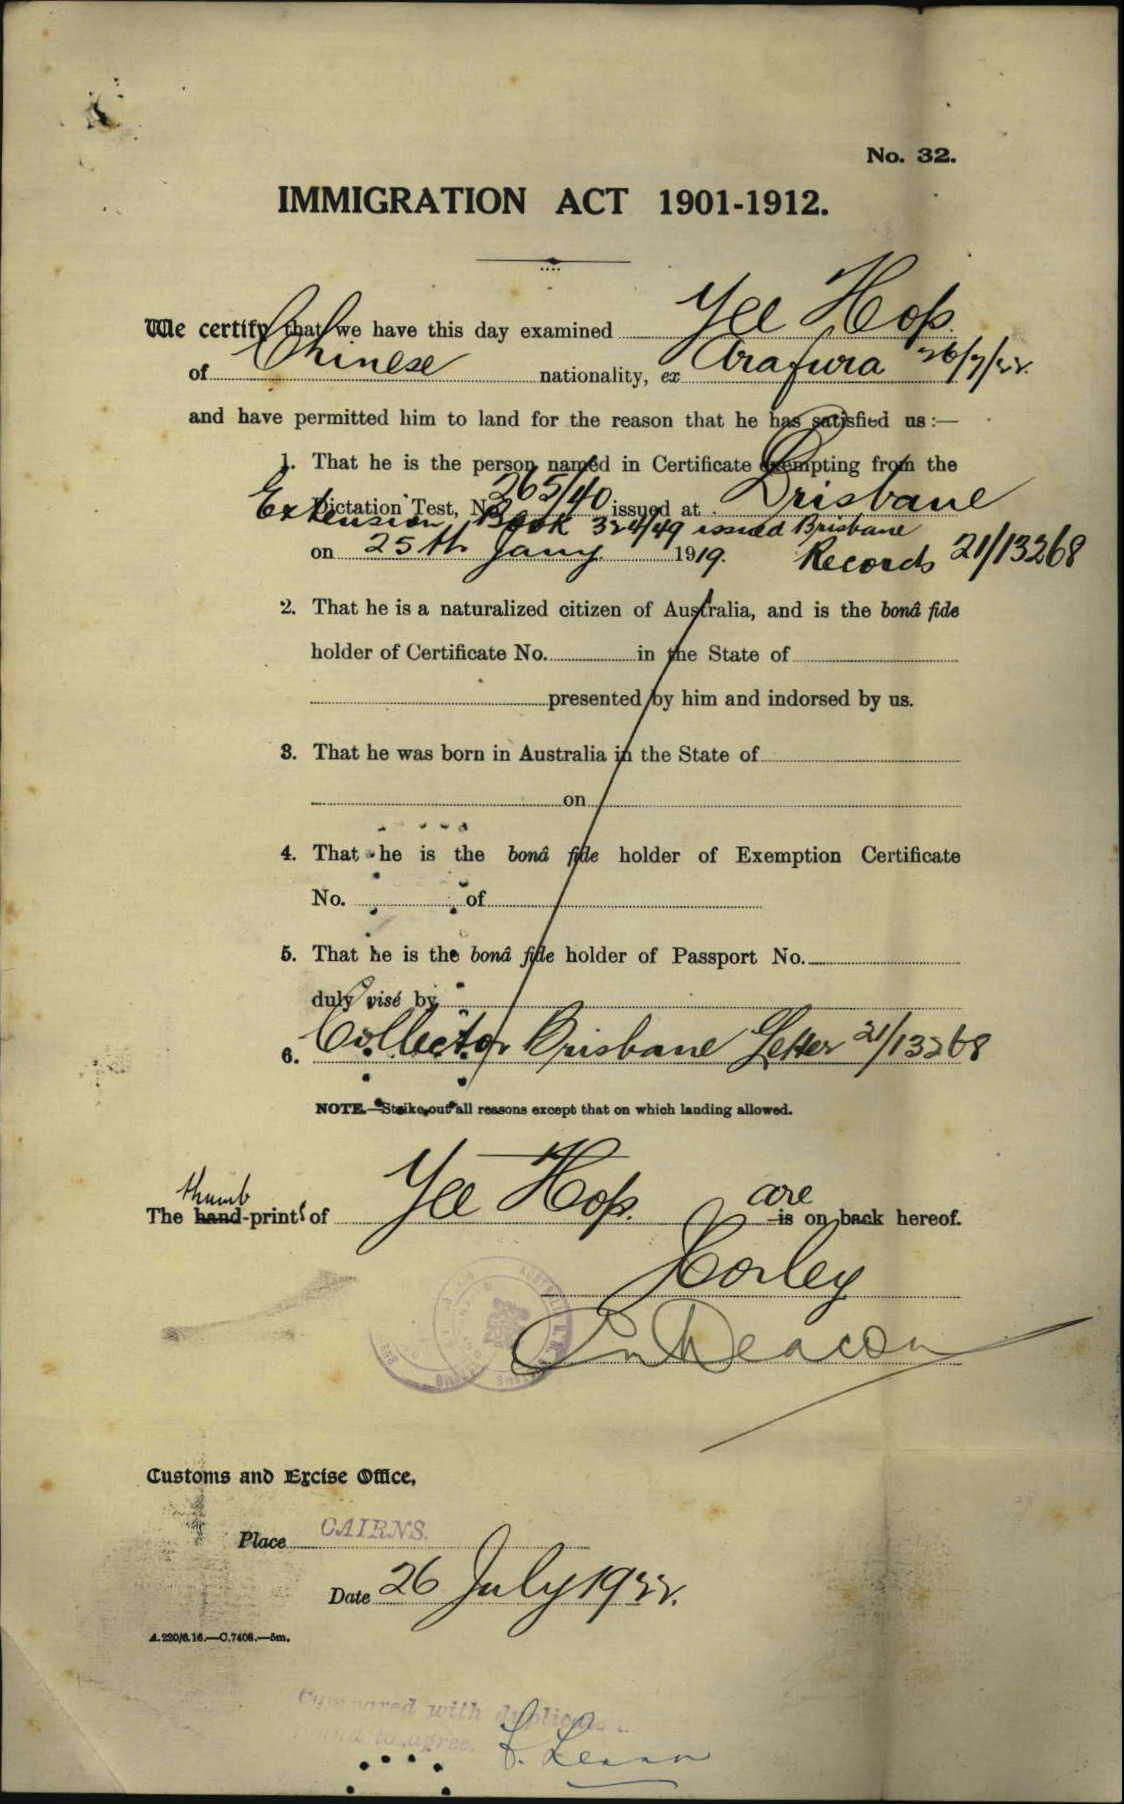 No. 32.
IMMIGRATION ACT 1901-1912.
We certify that we have this day examined Yee Hop.
of Chinese nationality, ex Arafura 26/7/22.
and have permitted him to land for the reason that he has satisfied us:—
1. That he is the person named in Certificate exempting from the
Dictation Test, No. 265/40 issued at Brisbane
Extension Book 324/49 issued Brisbane
on 25th Jany 1919. Records 21/13268
2. That he is a naturalized citizen of Australia, and is the bonâ fide
holder of Certificate No. in the State of
presented by him and indorsed by us.
3. That he was born in Australia in the State of
on
4. That he is the bonâ fide holder of Exemption Certificate
No. of
5. That he is the bonâ fide holder of Passport No.
duly visé by
6. Collector Brisbane Letter 21/13268
NOTE.—Strike out all reasons except that on which landing allowed.
thumb are
The hand-prints of Yee Hop. is on back hereof.
Corley
Deacon
Customs and Excise Office,
Place CAIRNS.
Date 26 July 1922.
A.220/6.16.—C.7408.—5m.
Compared with duplicate
and to agree.